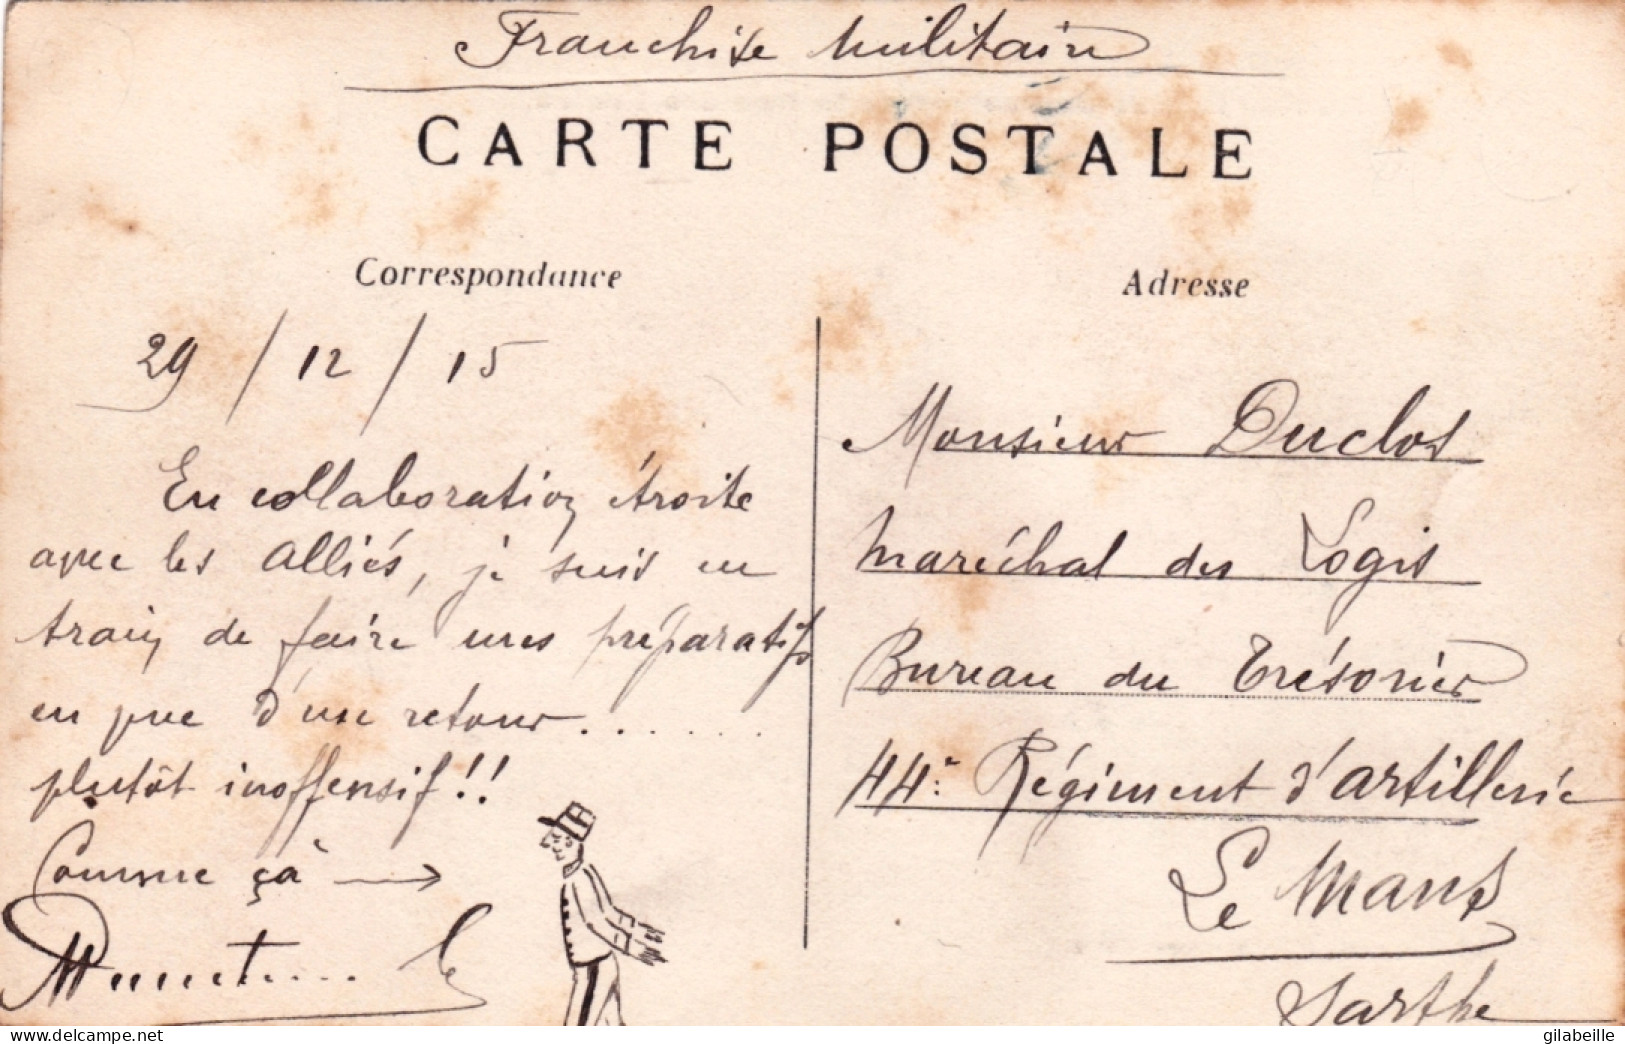 Franchise Militaire
CARTE POSTALE
Correspondance
29 / 12 / 15
En collaboration étroite
avec les Alliés, je suis en
train de faire mes préparatifs
en vue d'un retour.......
plutôt inoffensif!!
Comme çà →
Adresse
Monsieur Duclos
Maréchal des Logis
Bureau du Trésorier
44e Régiment d'Artillerie
Le Mans
Sarthe
delcampe.net
gilabeille